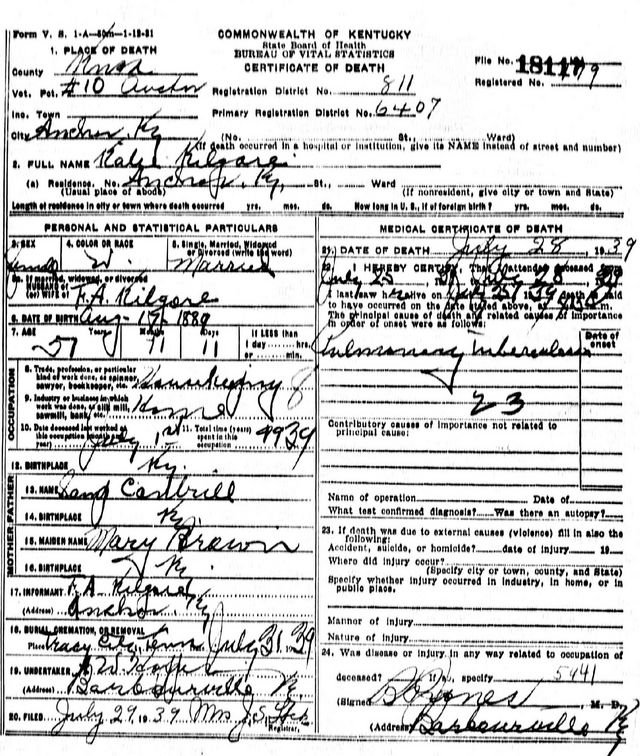 Form V. S. 1-A—50m—1-12-31
COMMONWEALTH OF KENTUCKY
State Board of Health
BUREAU OF VITAL STATISTICS
CERTIFICATE OF DEATH
1. PLACE OF DEATH
County Knox
File No. 18117
Registered No. 79
Vot. Pct. #10 Austin
Registration District No. 811
Inc. Town
Primary Registration District No. 6407
City Anchor, Ky
(No. St., Ward)
(If death occurred in a hospital or institution, give its NAME instead of street and number)
2. FULL NAME Kilgore
(a) Residence. No. Anchor, Ky, St., Ward
(Usual place of abode) (If nonresident, give city or town and State)
Length of residence in city or town where death occurred yrs. mos. ds. How long in U. S., if of foreign birth? yrs. mos. ds.
PERSONAL AND STATISTICAL PARTICULARS
3. SEX 4. COLOR OR RACE 5. Single, Married, Widowed or Divorced (write the word)
W. Married
5a. If married, widowed, or divorced
HUSBAND of
(or) WIFE of F. A. Kilgore
6. DATE OF BIRTH Aug-17-1880
7. AGE Years Months Days If LESS than
1 day hrs.
57 11 11 or min.
OCCUPATION
8. Trade, profession, or particular
kind of work done, as spinner,
sawyer, bookkeeper, etc. Housekeeping
9. Industry or business in which
work was done, as silk mill,
sawmill, bank, etc. Home
10. Date deceased last worked at
this occupation (month and
year) July 1st
11. Total time (years)
spent in this
occupation 1939
12. BIRTHPLACE Ky.
FATHER
13. NAME
14. BIRTHPLACE Ky.
MOTHER
15. MAIDEN NAME Mary Brown
16. BIRTHPLACE Ky.
17. INFORMANT F. A. Kilgore
(Address) Anchor Ky
18. BURIAL, CREMATION, OR REMOVAL
Place Tracy City, Tenn. July 31, 1939
19. UNDERTAKER
(Address) Barbourville Ky
20. FILED July 29, 1939 Mrs J. S.
Registrar.
MEDICAL CERTIFICATE OF DEATH
21. DATE OF DEATH July 28, 1939
22. I HEREBY CERTIFY, That I attended deceased from
July 25 July 28
I last saw h alive on July 27 1939 death is said
to have occurred on the date stated above, at m.
The principal cause of death and related causes of importance
in order of onset were as follows:
Date of
onset
Pulmonary Tuberculosis
23
Contributory causes of importance not related to
principal cause:
Name of operation Date of
What test confirmed diagnosis? Was there an autopsy?
23. If death was due to external causes (violence) fill in also the
following:
Accident, suicide, or homicide? date of injury 19
Where did injury occur?
(Specify city or town, county, and State)
Specify whether injury occurred in industry, in home, or in
public place.
Manner of injury
Nature of injury
24. Was disease or injury in any way related to occupation of
deceased? If so, specify 5941
(Signed Jones, M. D.
(Address) Barbourville Ky